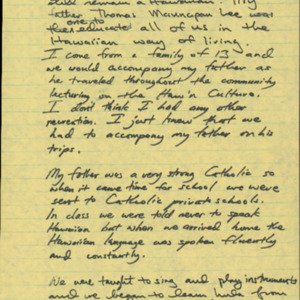 still remain a Hawaiian. My
father Thomas Maunupau Lee was
one to
educate all of us in the
Hawaiian way of living
I come from a family of 12 and
we would accompany my father as
he traveled throughout the community
lecturing on the Haw'n Culture.
I don't think I had any other
recreation. I just knew that we
had to accompany my father on his
trips.
My father was a very strong Catholic so
when it came time for school we were
sent to Catholic private schools.
In class we were told never to speak
Hawaiian but when we arrived home the
Hawaiian language was spoken fluently
and constantly.
We were taught to sing and play instruments
and we began to learn hula from